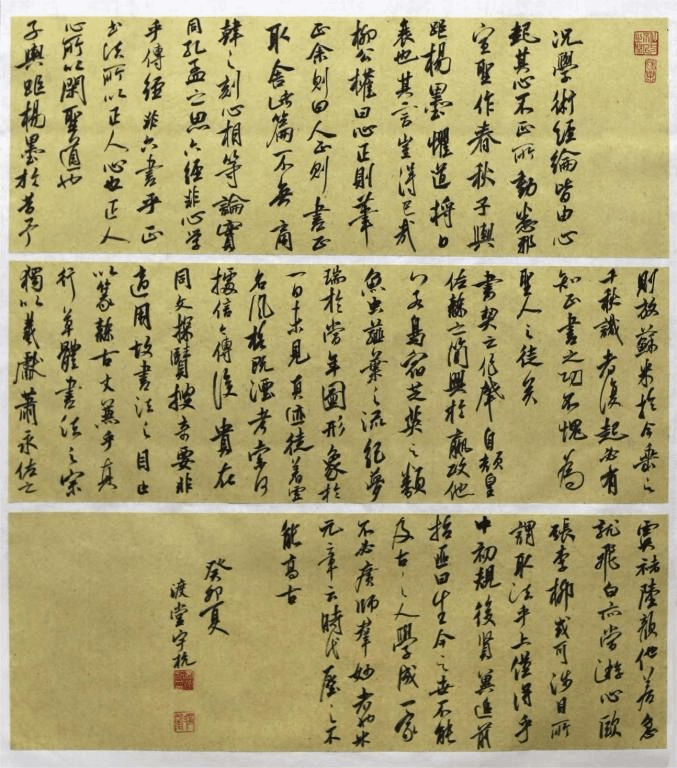 况學術經綸皆由心
起其心不正所動悉邪
宣聖作春秋子輿
距楊墨懼道將日
衰也其言豈得已哉
柳公權曰心正則筆
正余則曰人正則書正
取舍諸篇不無商
韓之刻心相等論實
同孔孟之思六經非心學
乎傳經非六書乎正
書法所以正人心也正人
心所以閑聖道也
子輿距楊墨於昔予
則放蘇米於今垂之
千秋識者復起必有
知正書之功不愧為
聖人之徒矣
書契之作肇自頡皇
佐隸之簡興於嬴政他
若鳥宿芝英之類
魚虫薤葉之流紀夢
瑞於當年圖形象於
一日未見真迹徒著虛
名風格既湮考索何
據信今傳後貴在
同文探賾搜奇要非
適用故書法之目止
以篆隸古文兼乎真
行草體書法之宗
獨以羲獻蕭永佐之
虞褚陸顏他若急
就飛白亦當游心歐
張李柳或可涉目所
謂取法乎上僅得乎
中初規後賢冀追前
哲匪曰生今之世不能
及古之人學成一家
不必廣師群妙者也米
元章云時代壓之不
能高古
癸卯夏
渡堂宇杭